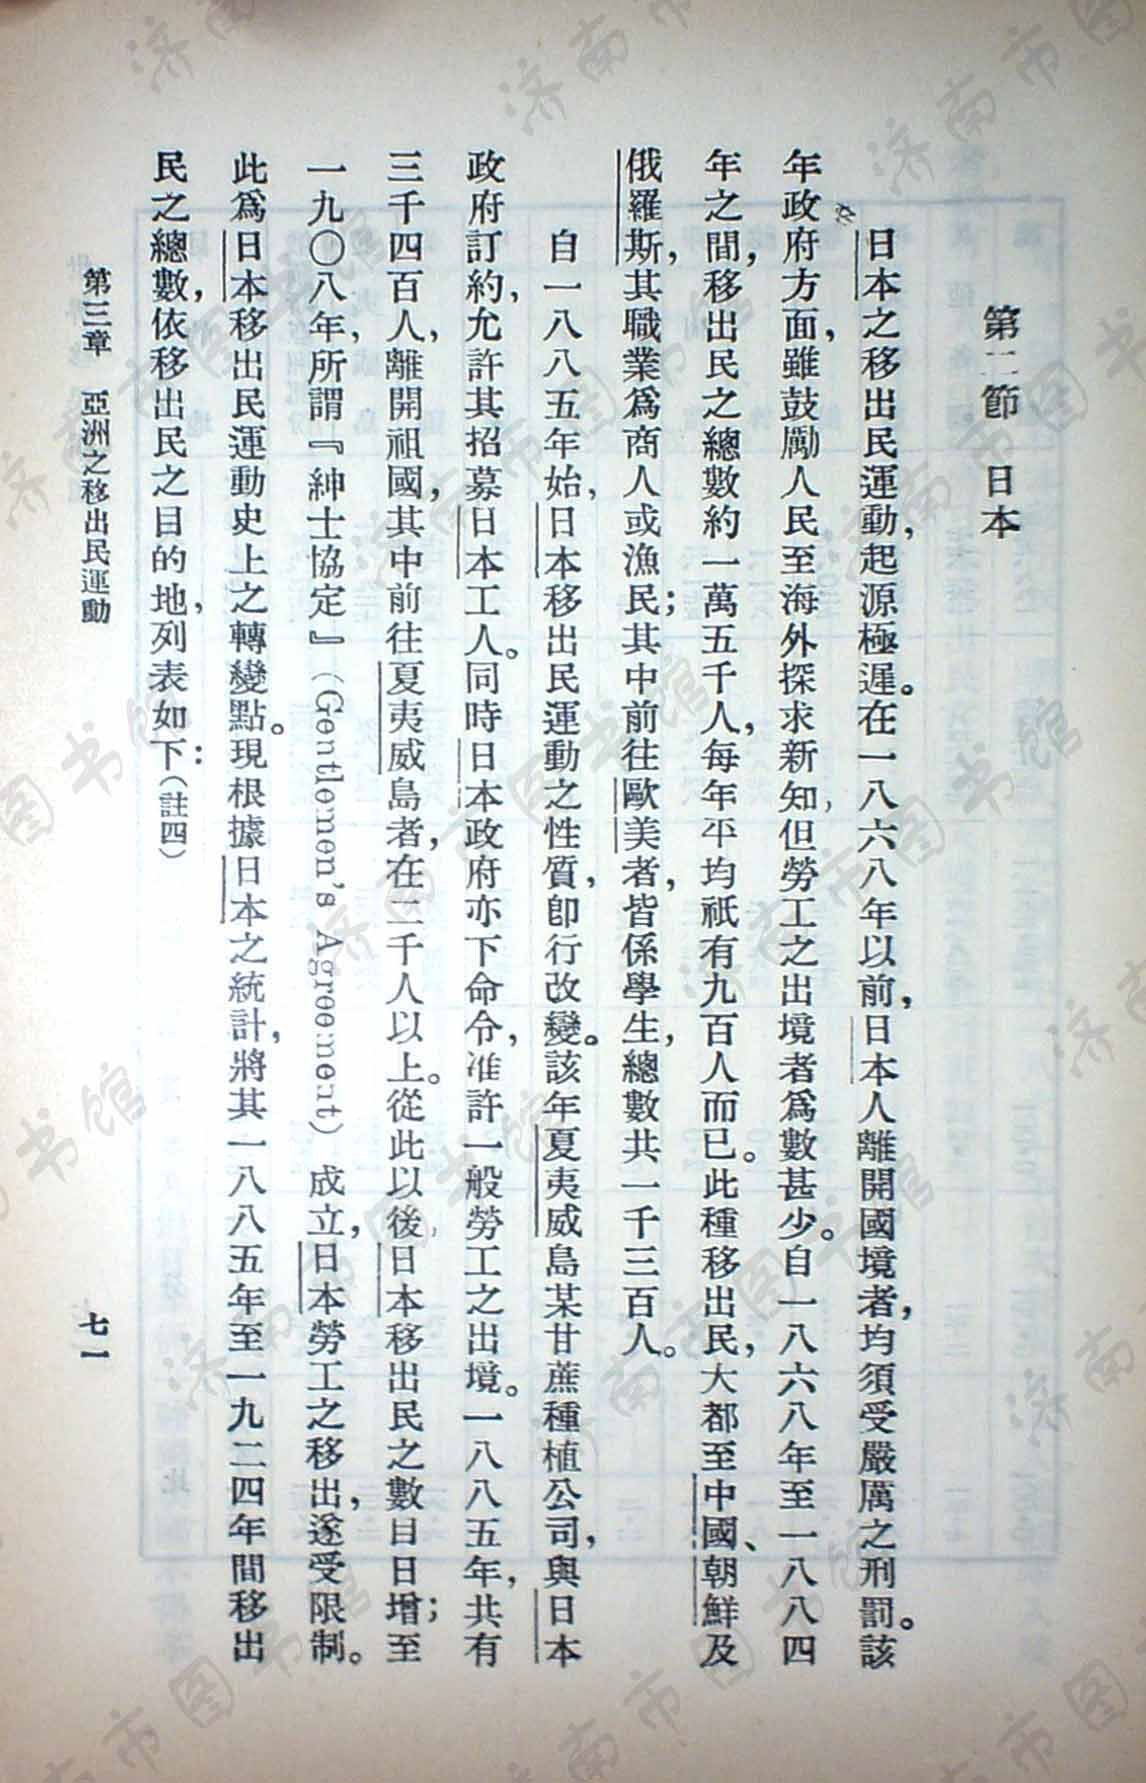 第二節　日本
日本之移出民運動，起源極遲。在一八六八年以前，日本人離開國境者，均須受嚴厲之刑罰。該
年政府方面，雖鼓勵人民至海外探求新知，但勞工之出境者爲數甚少。自一八六八年至一八八四
年之間，移出民之總數約一萬五千人，每年平均祇有九百人而已。此種移出民，大都至中國、朝鮮及
俄羅斯，其職業爲商人或漁民；其中前往歐美者，皆係學生，總數共一千三百人。
自一八八五年始，日本移出民運動之性質，卽行改變。該年夏夷威島某甘蔗種植公司，與日本
政府訂約，允許其招募日本工人。同時日本政府亦下命令，准許一般勞工之出境。一八八五年，共有
三千四百人，離開祖國，其中前往夏夷威島者，在二千人以上。從此以後，日本移出民之數目日增；至
一九〇八年，所謂『紳士協定』（Gentlemen's Agreement）成立，日本勞工之移出，遂受限制。
此爲日本移出民運動史上之轉變點。現根據日本之統計，將其一八八五年至一九二四年間移出
民之總數，依移出民之目的地，列表如下：（註四）
第三章　亞洲之移出民運動
七一
济南市图书馆